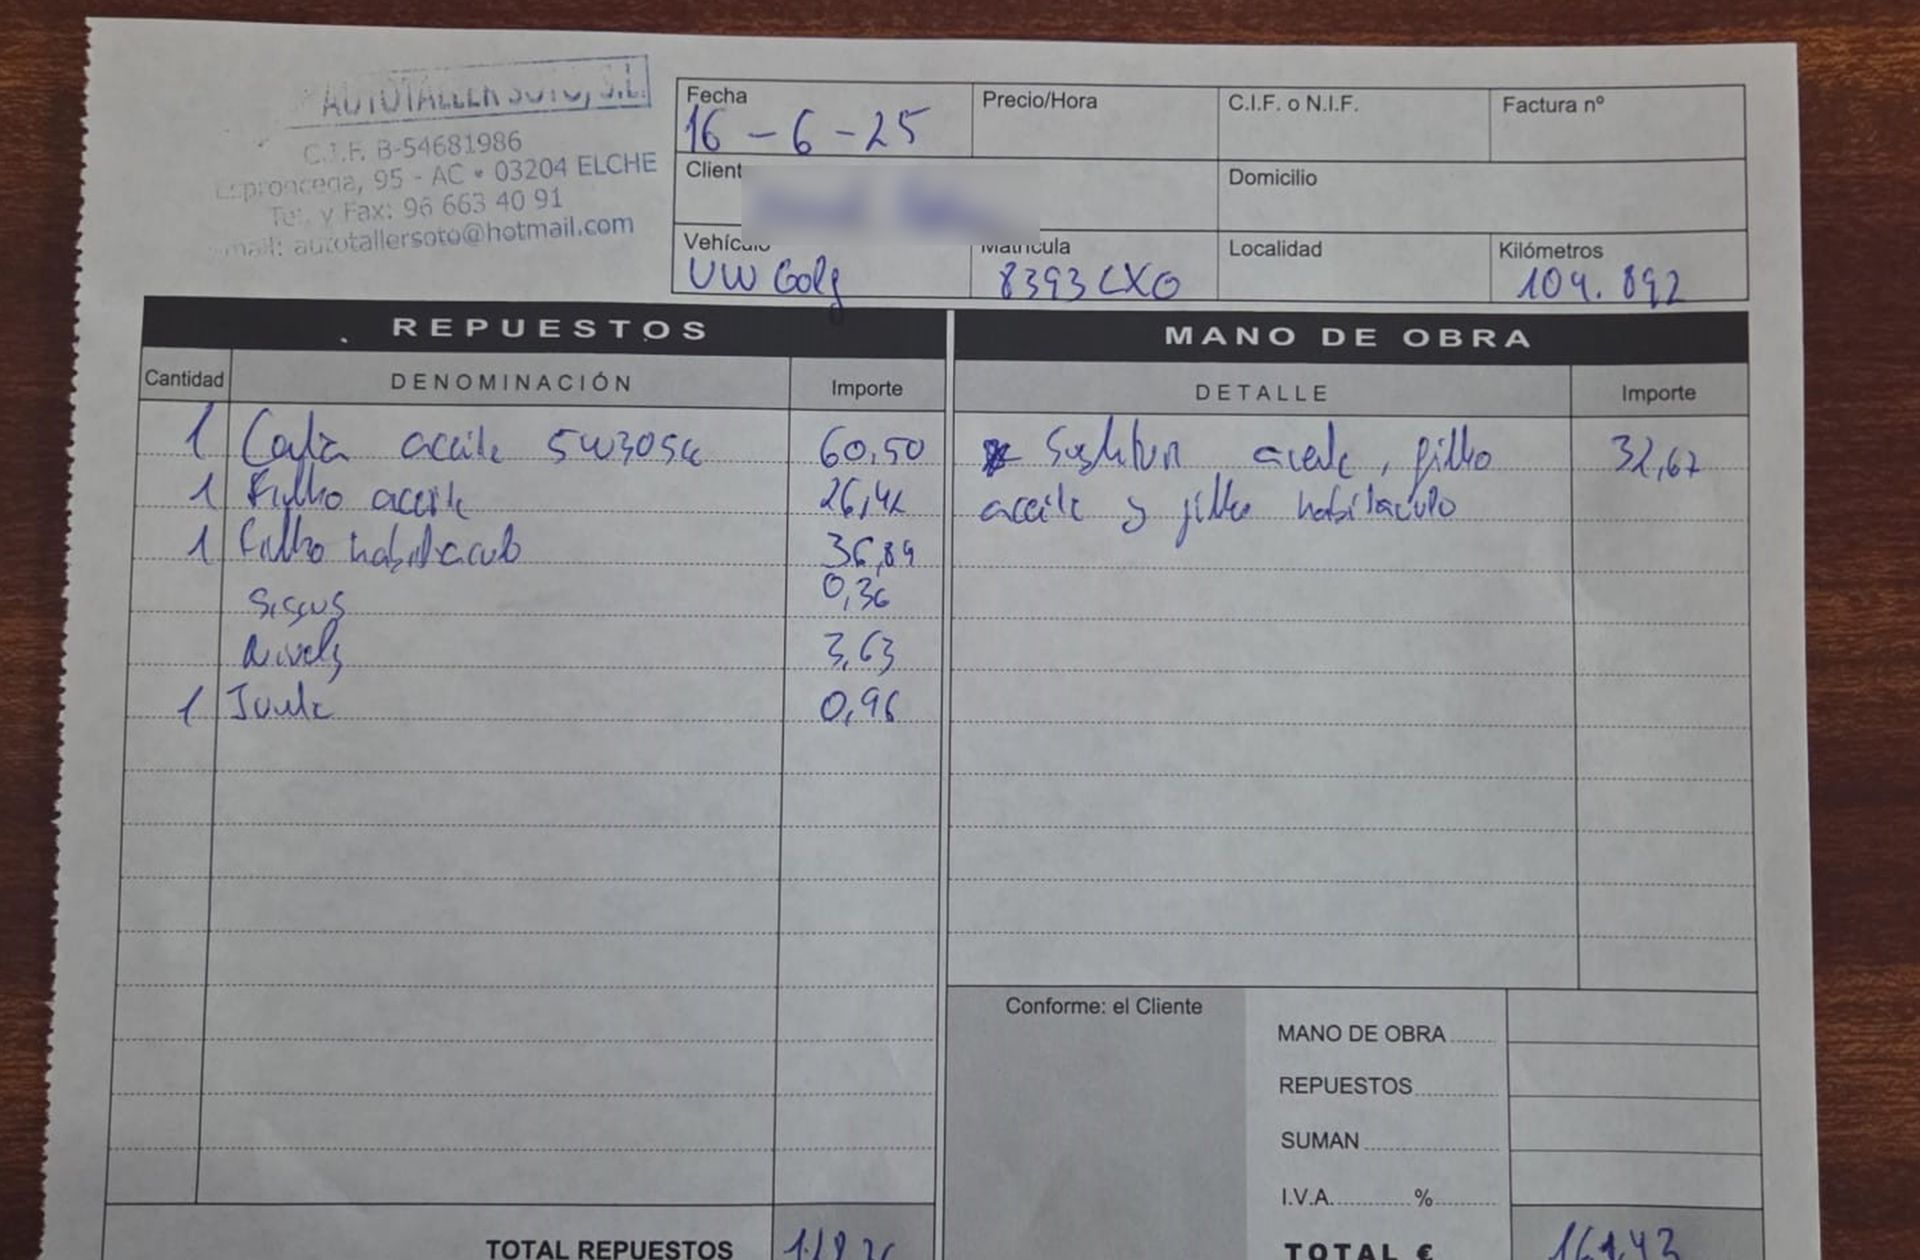 AUTOTALLER SOTO, S.L.
C.I.F. B-54681986
Espronceda, 95 - AC • 03204 ELCHE
Tel. y Fax: 96 663 40 91
email: autotallersoto@hotmail.com
Fecha
16 - 6 - 25
Precio/Hora
C.I.F. o N.I.F.
Factura nº
Client
Domicilio
Vehículo
VW Golf
Matrícula
8393 CXG
Localidad
Kilómetros
104.892
REPUESTOS
Cantidad DENOMINACIÓN Importe
1 aceite 5W30 60,50
1 Filtro aceite 26,42
1 Filtro habitaculo 36,89
0,36
Niveles 3,63
1 Junta 0,96
MANO DE OBRA
DETALLE Importe
Sustituir aceite, filtro 32,67
aceite y filtro habitaculo
Conforme: el Cliente
MANO DE OBRA
REPUESTOS
SUMAN
I.V.A. %
TOTAL REPUESTOS
TOTAL € 161,43